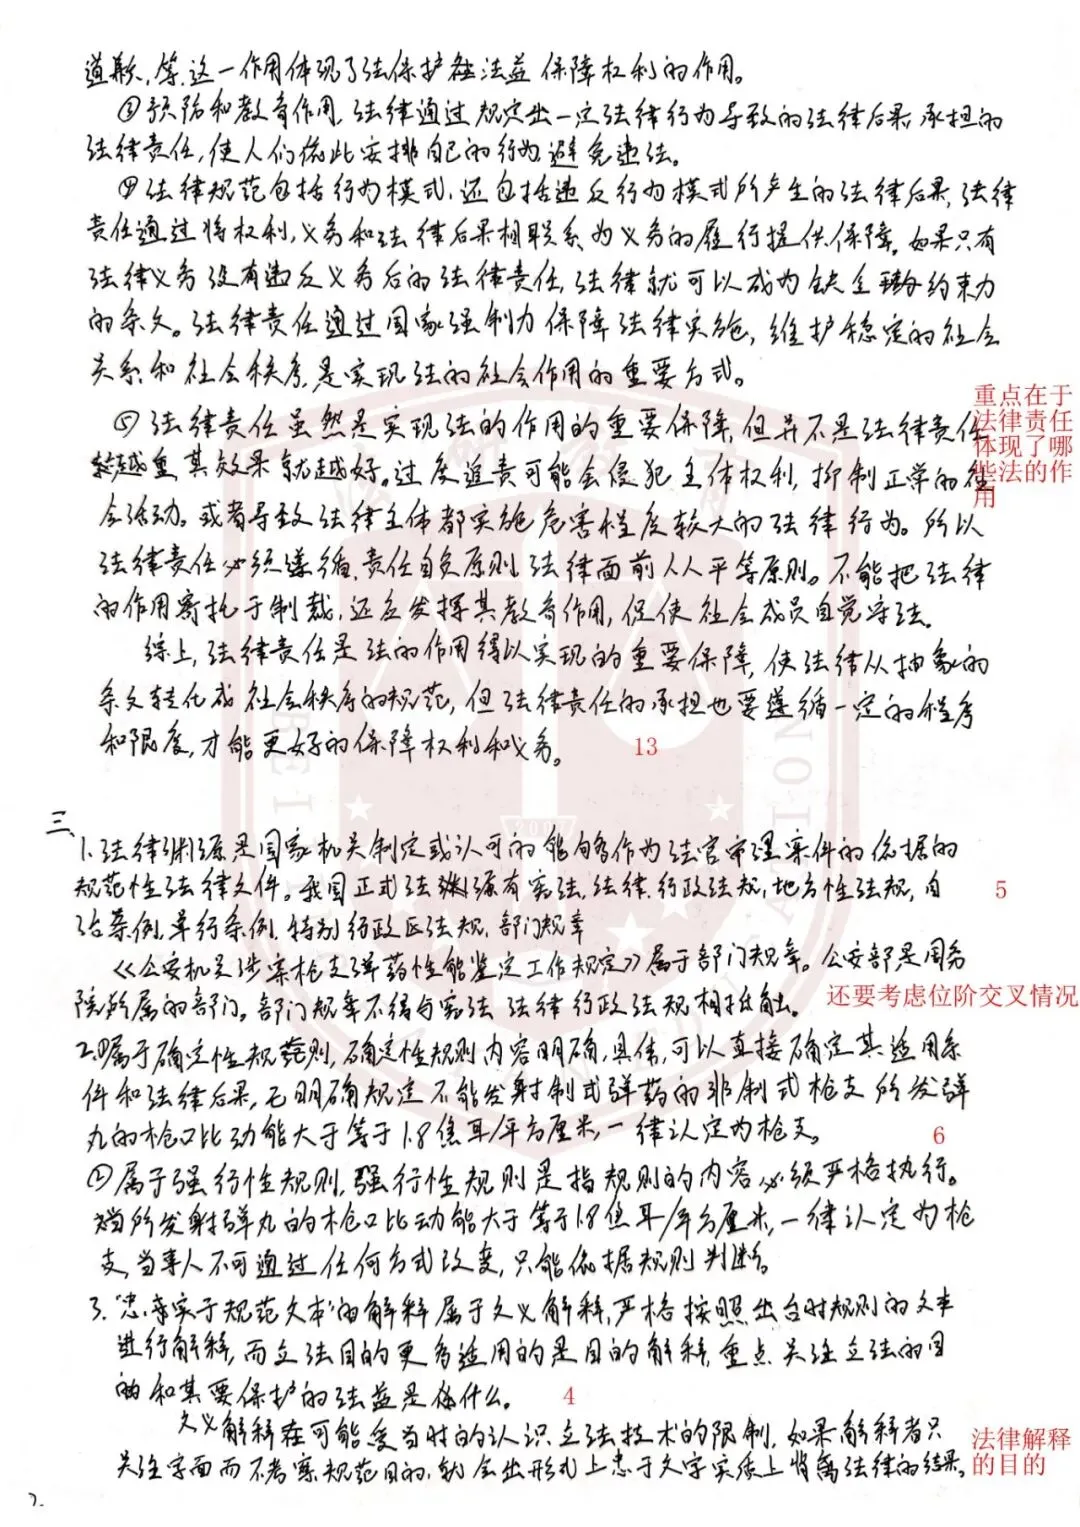 道歉、等,这一作用体现了法保护法益 保障权利的作用。
③预防和教育作用,法律通过规定出一定法律行为导致的法律后果,承担的
法律责任,使人们依此安排自己的行为避免违法。
④法律规范包括行为模式,还包括违反行为模式所产生的法律后果,法律
责任通过将权利,义务和法律后果相联系,为义务的履行提供保障。如果只有
法律义务没有违反义务后的法律责任,法律就可以成为缺乏约束力
的条文。法律责任通过国家强制力保障法律实施,维护稳定的社会
关系和社会秩序,是实现法的社会作用的重要方式。
⑤法律责任虽然是实现法的作用的重要保障,但并不是法律责任
越重其效果就越好。过度追责可能会侵犯主体权利,抑制正常的社
会活动。或者导致法律主体都实施危害程度较大的法律行为。所以
法律责任必须遵循,责任自负原则,法律面前人人平等原则。不能把法律
的作用寄托于制裁,还应发挥其教育作用,促使社会成员自觉守法。
综上,法律责任是法的作用得以实现的重要保障,使法律从抽象的
条文转化成社会秩序的规范,但法律责任的承担也要遵循一定的程序
和限度,才能更好的保障权利和义务。 13
重点在于
法律责任
体现了哪
些法的作
用
三、
1.法律渊源是国家机关制定或认可的能够作为法官审理案件的依据的
规范性法律文件。我国正式法渊源有宪法,法律,行政法规,地方性法规,自 5
治条例,单行条例,特别行政区法规,部门规章
《公安机关涉案枪支弹药性能鉴定工作规定》属于部门规章。公安部是国务
院所属的部门。部门规章不得与宪法 法律 行政法规相抵触。
还要考虑位阶交叉情况
2.①属于确定性规则,确定性规则内容明确,具体,可以直接确定其适用条
件和法律后果,它明确规定不能发射制式弹药的非制式枪支所发弹
丸的枪口比动能大于等于1.8焦耳/平方厘米,一律认定为枪支。 6
②属于强行性规则,强行性规则是指规则的内容必须严格执行。
当所发射弹丸的枪口比动能大于等于1.8焦耳/平方厘米,一律认定为枪
支,当事人不可通过任何方式改变,只能依据规则判断。
3.“忠实于规范文本”的解释属于文义解释,严格按照出台时规则的文本
进行解释,而立法目的更多适用的是目的解释,重点关注立法的目
的和其要保护的法益是什么。 4
文义解释在可能受当时的认识立法技术的限制,如果解释者只
关注字面而不考察规范目的,就会出形式上忠于文字实质上背离法律的结果。
法律解释
的目的
2.
BEI
ATION
2007